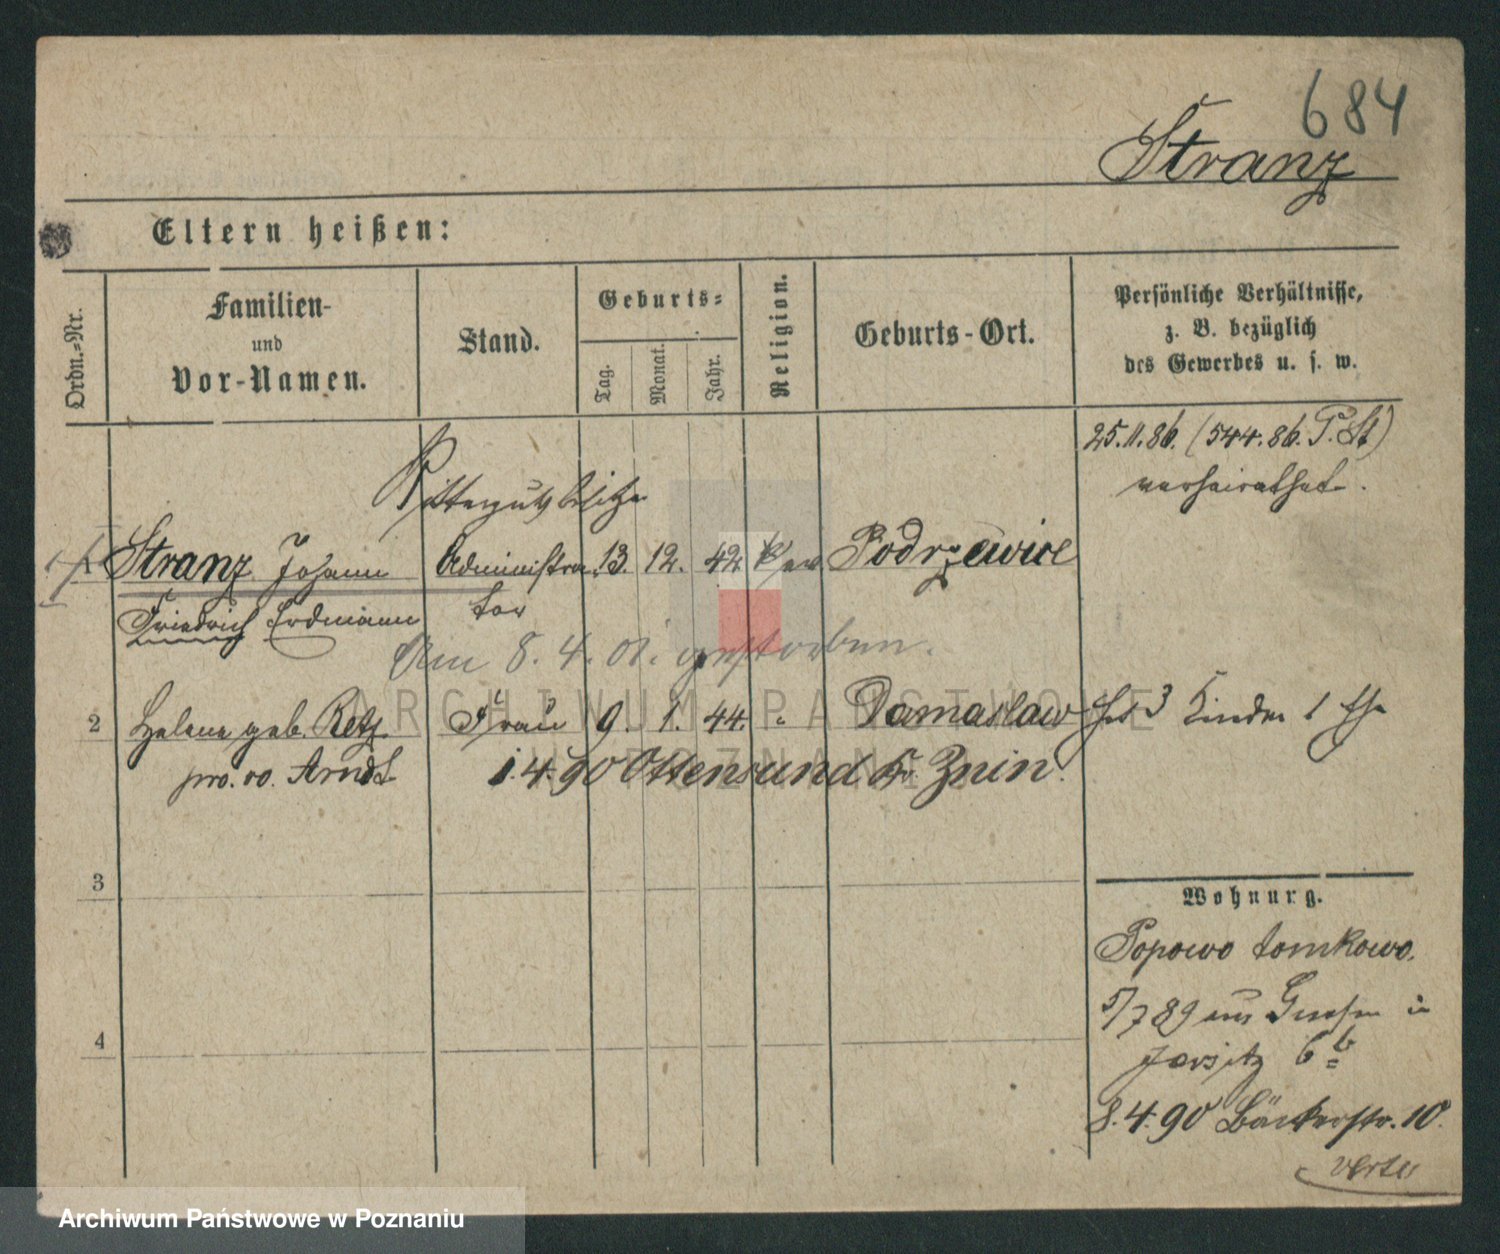 684
Stranz
Eltern heißen:
Ordn.-Nr.
Familien-
und
Vor-Namen.
Stand.
Geburts-
Tag.
Monat.
Jahr.
Religion.
Geburts-Ort.
Persönliche Verhältnisse,
z. B. bezüglich
des Gewerbes u. s. w.
25.11.86. (544.86. P. St)
verheirathet.
Rittergutsbesitzer
1 Stranz Johann Administra- 13. 12. 42 Podrzewice
Friedrich Erdmann tor
Am 8. 4. 01. gestorben.
2 Helene geb. Retz Frau 9. 1. 44. " Damaslaw hat 3 Kinder 1 Ehe
Arndt 1.4.90 Ottensund Kr. Znin.
3
4
Wohnung.
Popowo tomkowo.
5/7 89 aus Gnesen in
Jersitz 6b
8.4.90 Bäckerstr. 10.
verte
ARCHIWUM PAŃSTWOWE
W POZNANIU
Archiwum Państwowe w Poznaniu